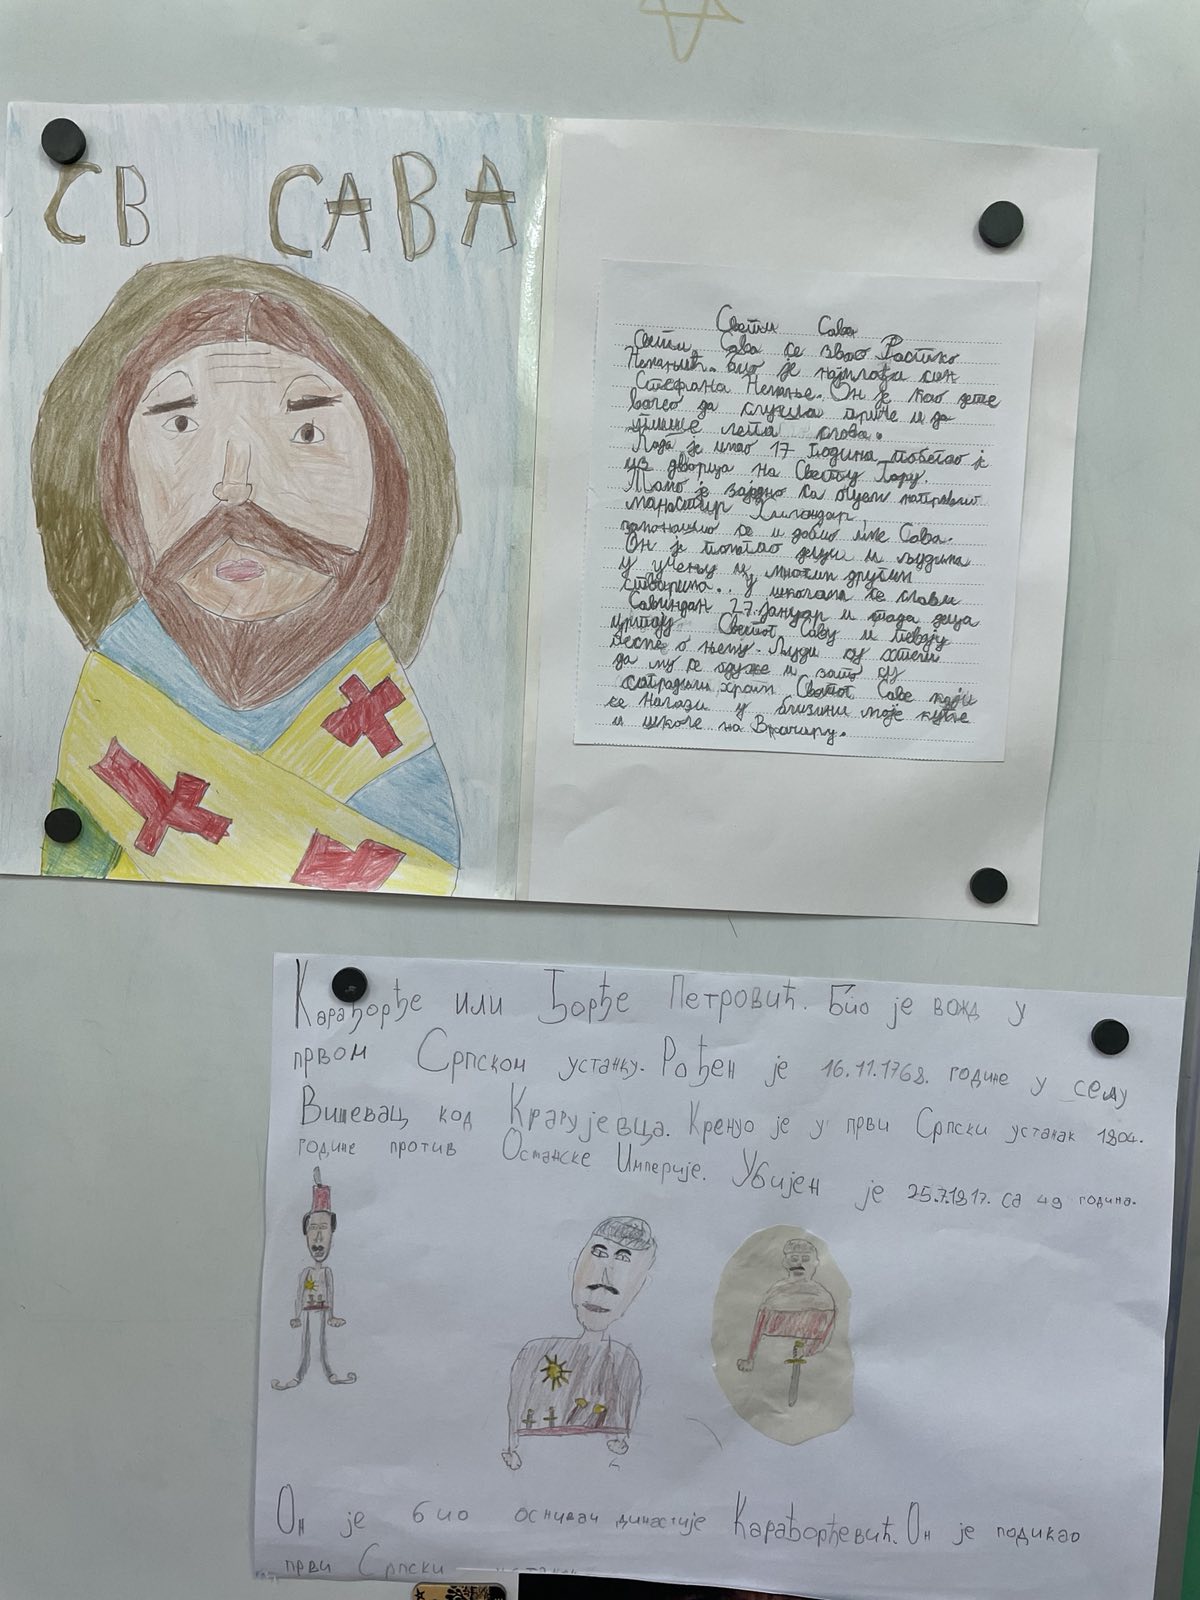 СВ САВА
Свети Сава
Свети Сава се звао Растко
Немањић. Био је најмлађи син
Стефана Немање. Он је као дете
волео да слуша приче и да
пише лепа слова.
Када је имао 17 година побегао је
из дворца на Свету Гору.
Тамо је заједно са оцем направио
манастир Хиландар,
замонашио се и добио име Сава.
Он је помагао деци и људима
у учењу и у многим другим
стварима.. У школама се слави
Савиндан 27. јануар и тада деца
цртају Светог Саву и певају
песме о њему. Људи су хтели
да му се одуже и зато су
саградили храм Светог Саве који
се налази у близини моје куће
и школе на Врачару.
Карађорђе или Ђорђе Петровић. Био је вожд у
првом Српском устанку. Рођен је 16.11.1768. године у селу
Вишевац код Крагујевца. Кренуо је у први Српски устанак 1804.
године против Останске Империје. Убијен је 25.7.1817. са 49 година.
Он је био оснивач династије Карађорђевић. Он је подикао
први Српски устанак